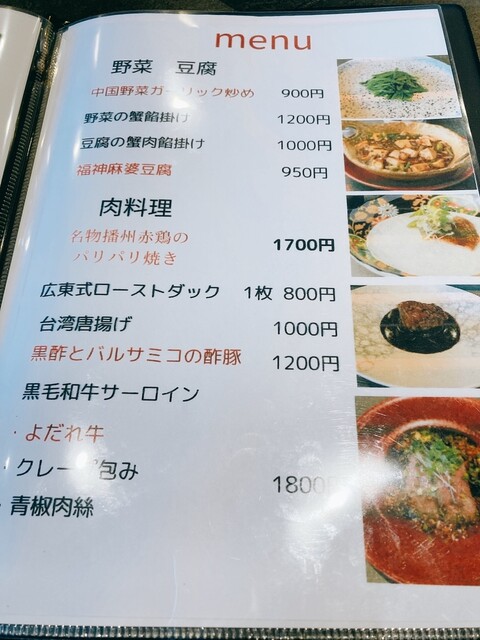 menu
野菜 豆腐
中国野菜ガーリック炒め 900円
野菜の蟹餡掛け 1200円
豆腐の蟹肉餡掛け 1000円
福神麻婆豆腐 950円
肉料理
名物播州赤鶏の
パリパリ焼き 1700円
広東式ローストダック 1枚 800円
台湾唐揚げ 1000円
黒酢とバルサミコの酢豚 1200円
黒毛和牛サーロイン
・よだれ牛
・クレープ包み 1800円
・青椒肉絲